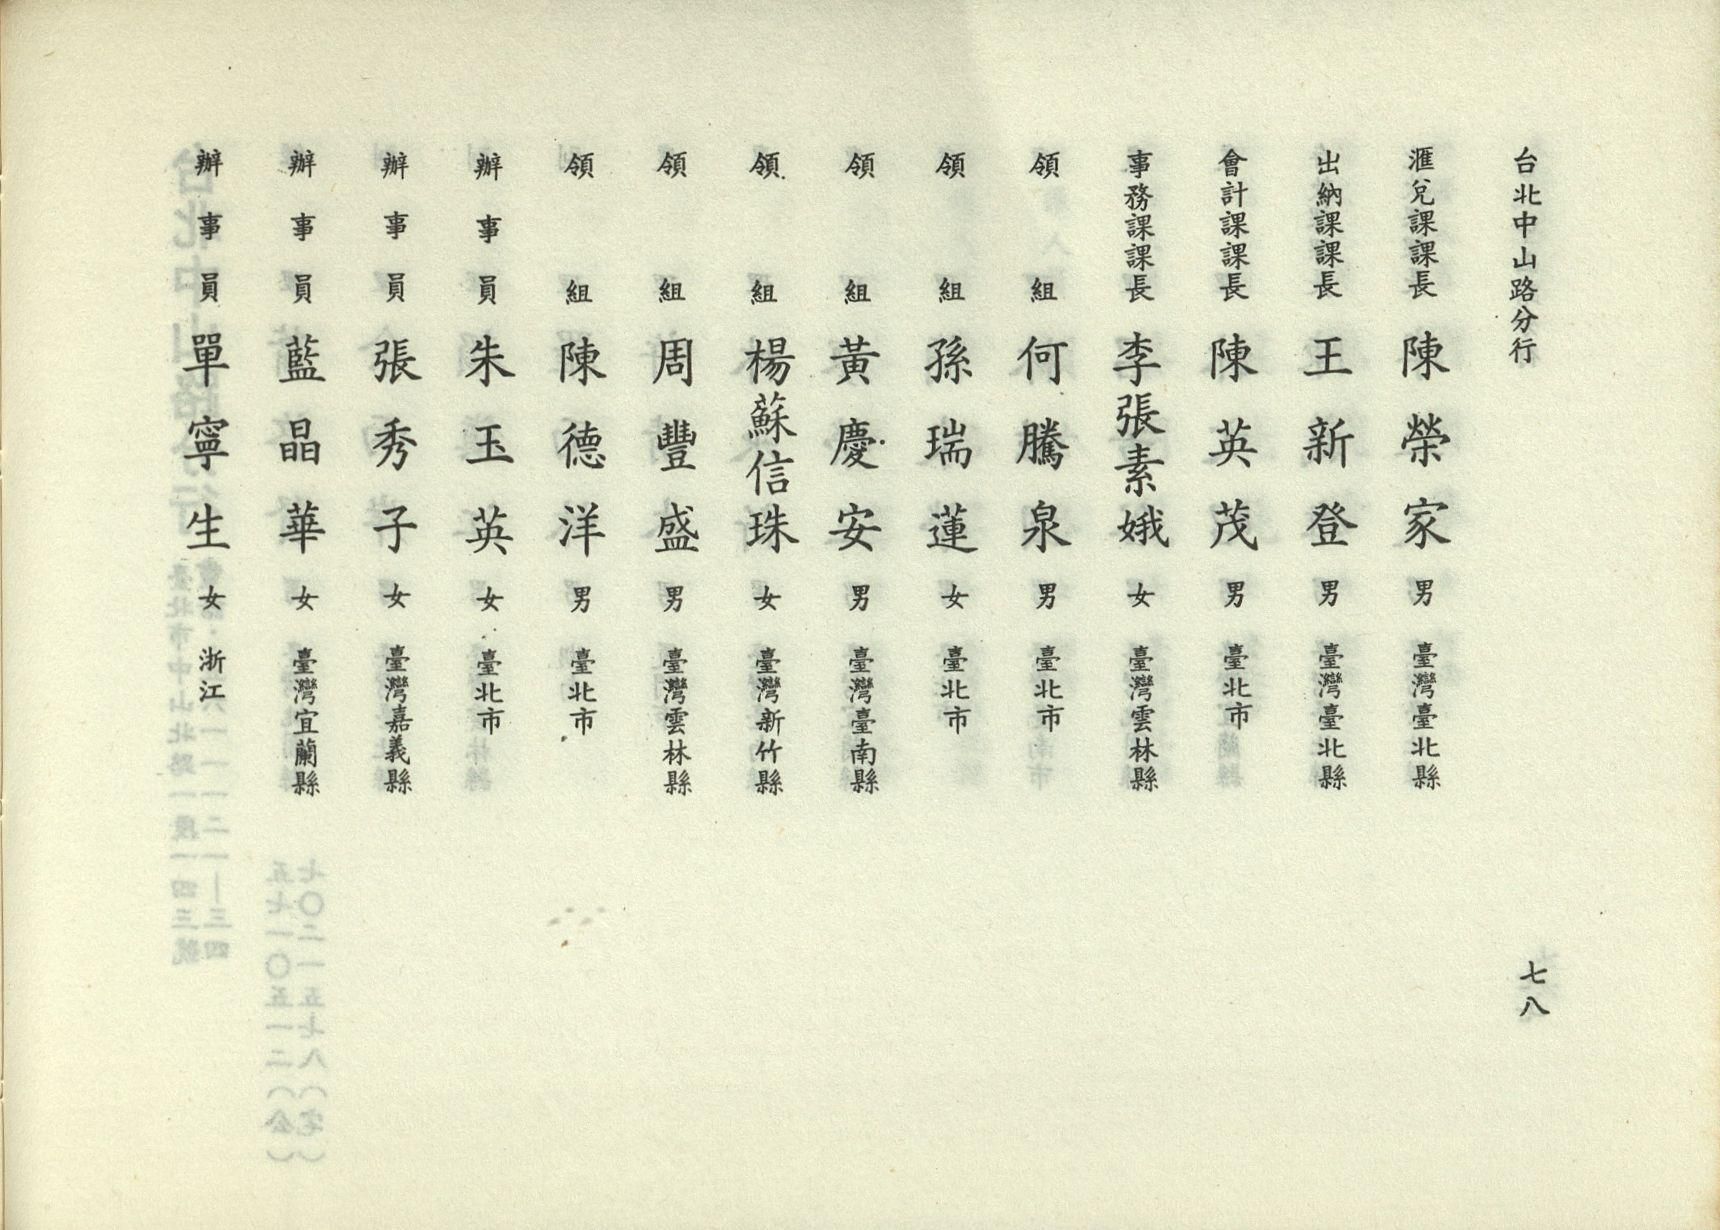 台北中山路分行
滙兌課課長 陳榮家 男 臺灣臺北縣
出納課課長 王新登 男 臺灣臺北縣
會計課課長 陳英茂 男 臺北市
事務課課長 李張素娥 女 臺灣雲林縣
領組 何騰泉 男 臺北市
領組 孫瑞蓮 女 臺北市
領組 黃慶安 男 臺灣臺南縣
領組 楊蘇信珠 女 臺灣新竹縣
領組 周豐盛 男 臺灣雲林縣
領組 陳德洋 男 臺北市
辦事員 朱玉英 女 臺北市
辦事員 張秀子 女 臺灣嘉義縣
辦事員 藍晶華 女 臺灣宜蘭縣
辦事員 單寧生 女 浙江
七八